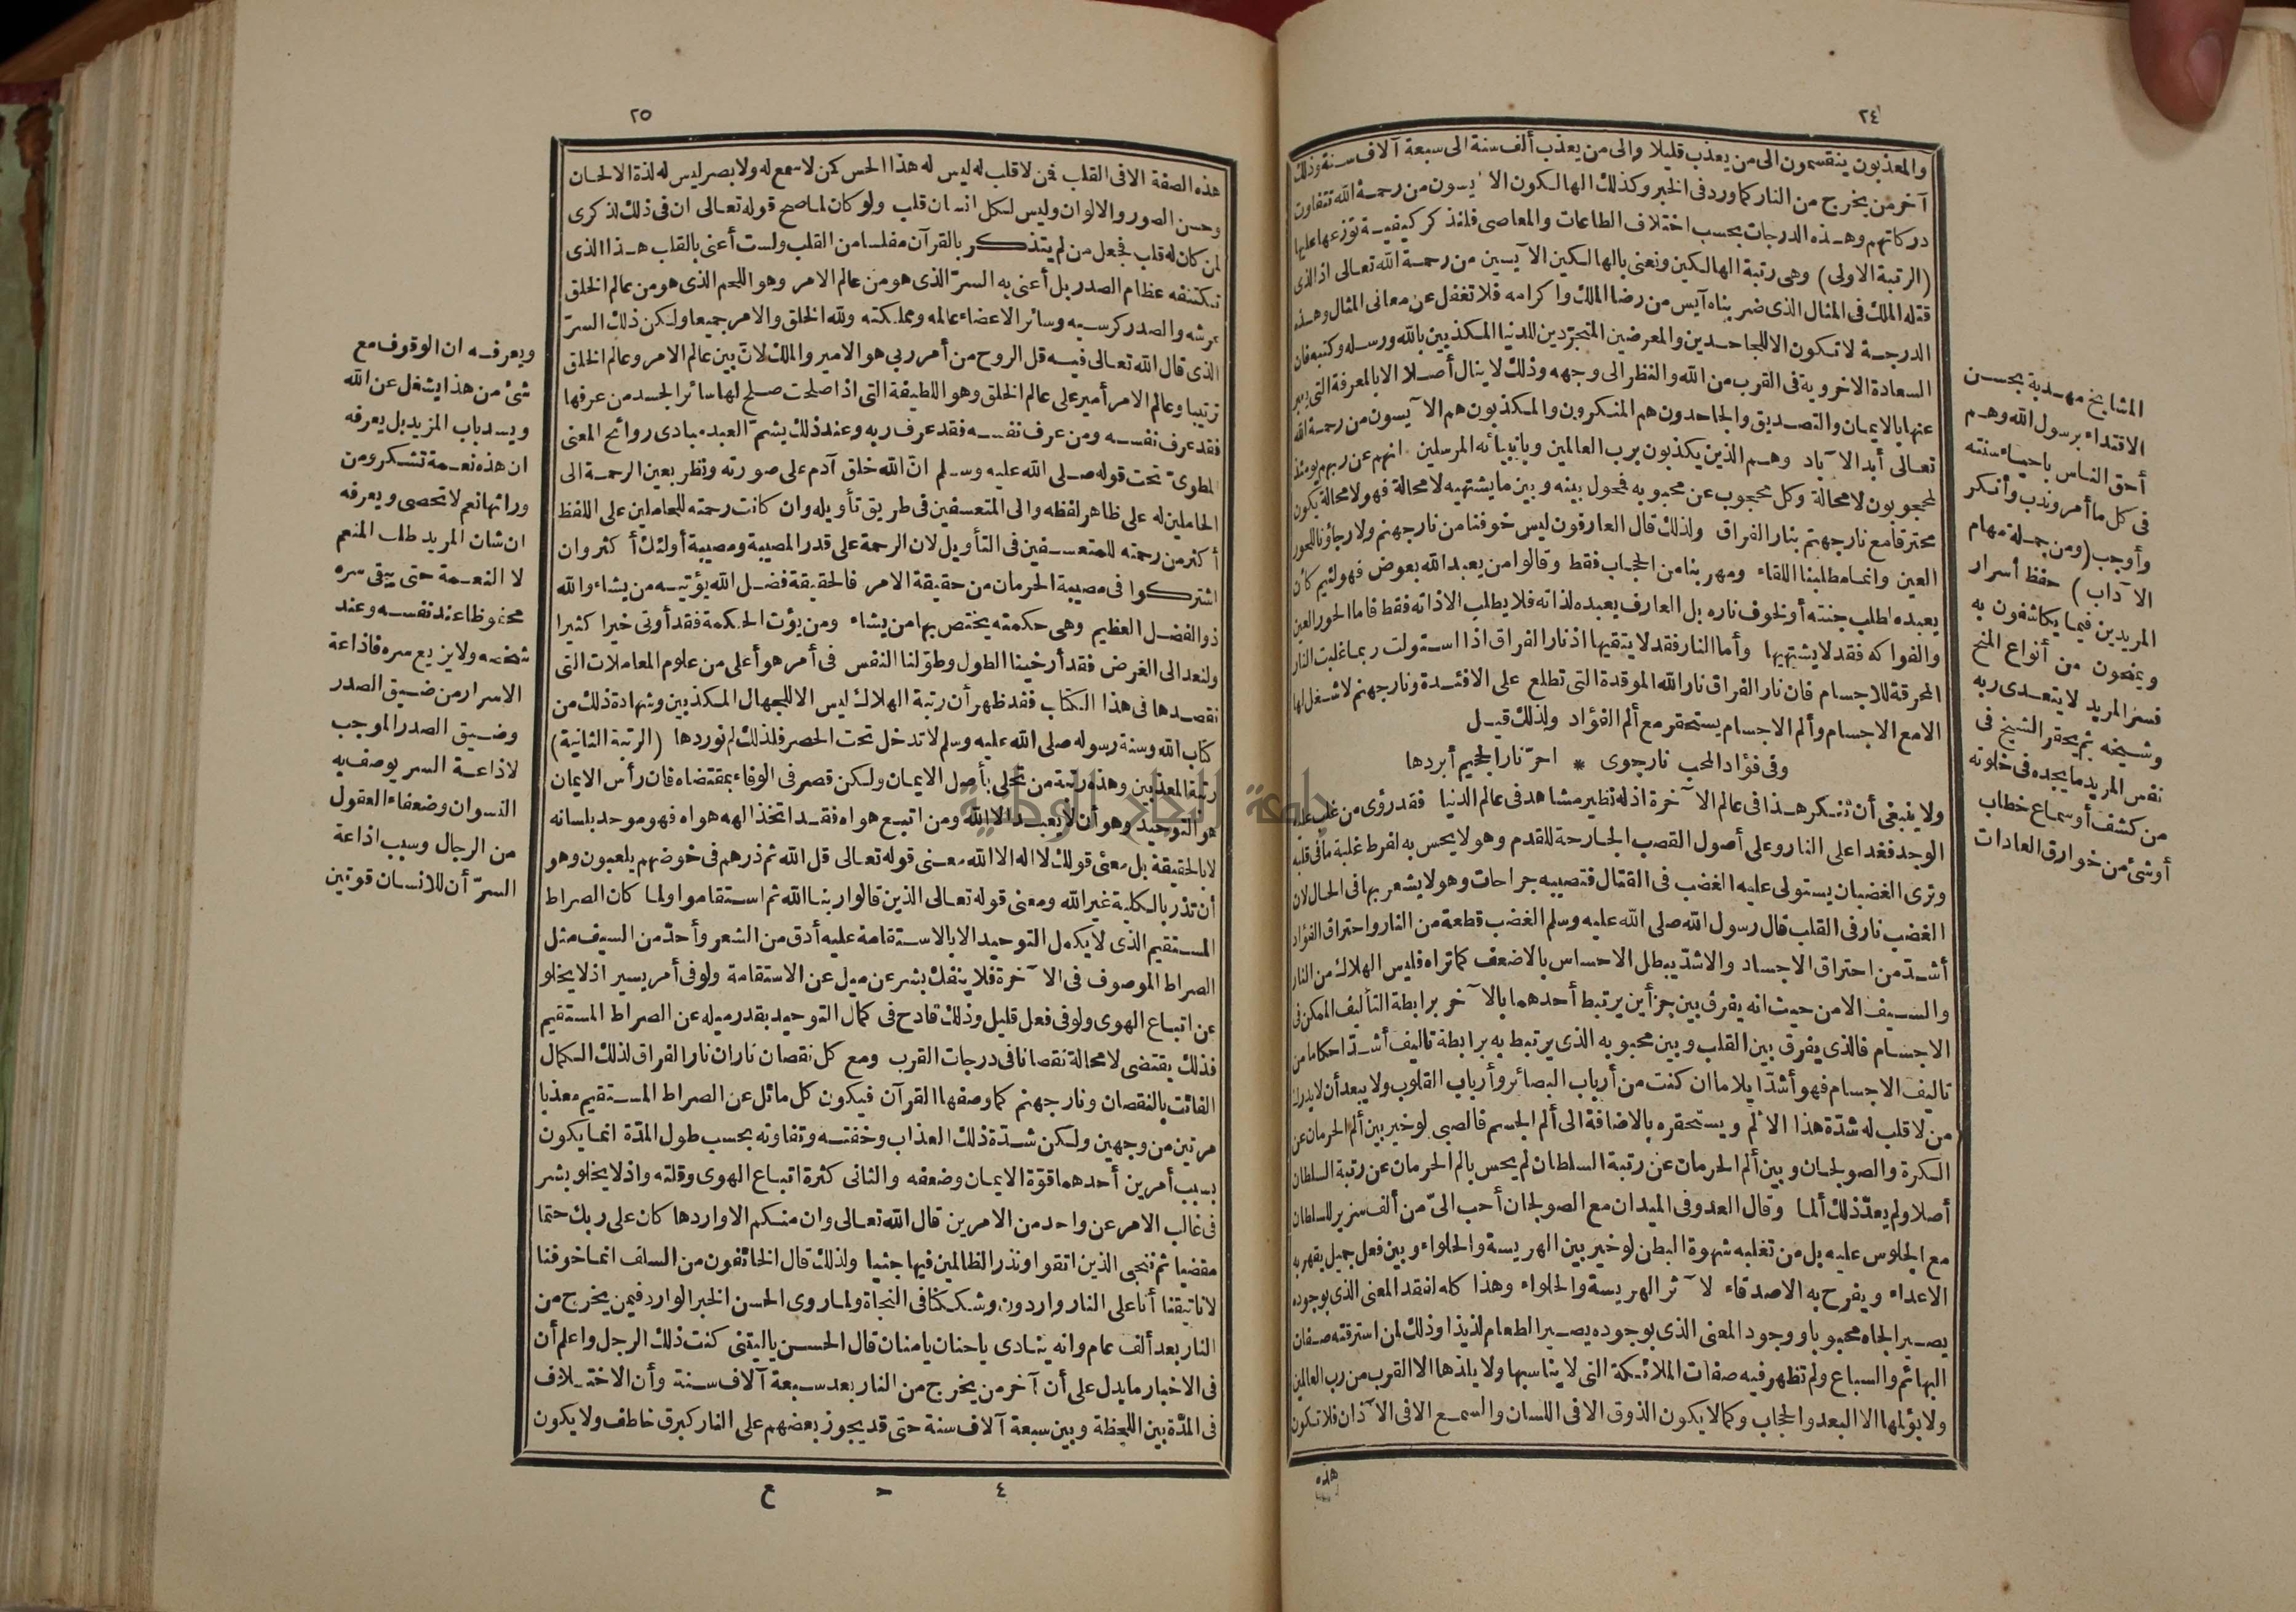 ٢٤
والمعذبون ينقسمون الى من يعذب قليلا والى من يعذب ألف سنة الى سبعة آلاف سنة وذلك
آخر من يخرج من النار كما ورد فى الخبر وكذلك الهالكون الآيسون من رحمة الله تتفاوت
دركاتهم وهذه الدرجات بحسب اختلاف الطاعات والمعاصى فلنذكر كيفية توزعها عليها
(الرتبة الاولى) وهى رتبة الهالكين ونعنى بالهالكين الآيسين من رحمة الله تعالى اذ الذى
قتله الملك فى المثال الذى ضربناه آيس من رضا الملك واكرامه فلا تغفل عن معانى المثال وهذه
الدرجة لا تكون الا للجاحدين والمعرضين المتجردين للدنيا المكذبين بالله ورسله وكتبه فان
السعادة الاخروية فى القرب من الله والنظر الى وجهه وذلك لا ينال أصلا الا بالمعرفة التى يعبر
عنها بالايمان والتصديق والجاحدون هم المنكرون والمكذبون هم الآيسون من رحمة الله
تعالى أبد الآباد وهم الذين يكذبون برب العالمين وبانبيائه المرسلين انهم عن ربهم يومئذ
لمحجوبون لا محالة وكل محجوب عن محبوبه فمحول بينه وبين ما يشتهيه لا محالة فهو لا محالة يكون
محترقا مع نار جهنم بنار الفراق ولذلك قال العارفون ليس خوفنا من نار جهنم ولا رجاؤنا للحور
العين وانما مطلبنا اللقاء ومهربنا من الحجاب فقط وقالوا من يعبد الله بعوض فهو لئيم كان
يعبده لطلب جنته أو لخوف ناره بل العارف يعبده لذاته فلا يطلب الا ذاته فقط فاما الحور العين
والفواكه فقد لا يشتهيها وأما النار فقد لا يتقيها اذ نار الفراق اذا استولت ربما غلبت النار
المحرقة للاجسام فان نار الفراق نار الله الموقدة التى تطلع على الافئدة ونار جهنم لا شغل لها
الا مع الاجسام وألم الاجسام يستحقر مع ألم الفؤاد ولذلك قيل
وفى فؤاد المحب نار جوى * احرّ نار الجحيم أبردها
ولا ينبغى أن ننكر هذا فى عالم الآخرة اذ له نظير مشاهد فى عالم الدنيا فقد رؤى من غلب عليه
الوجد فغدا على النار وعلى أصول القصب الجارحة للقدم وهو لا يحس به لفرط غلبة ما فى قلبه
وترى الغضبان يستولى عليه الغضب فى القتال فتصيبه جراحات وهو لا يشعر بها فى الحال لان
الغضب نار فى القلب قال رسول الله صلى الله عليه وسلم الغضب قطعة من النار واحتراق الفؤاد
أشدّ من احتراق الاجساد والاشدّ يبطل الاحساس بالاضعف كما تراه فليس الهلاك من النار
والسيف الا من حيث انه يفرق بين جزأين يرتبط أحدهما بالآخر برابطة التأليف الممكن فى
الاجسام فالذى يفرق بين القلب وبين محبوبه الذى يرتبط به برابطة تاليف أشدّ احكاما من
تاليف الاجسام فهو أشدّ ايلاما ان كنت من أرباب البصائر وأرباب القلوب ولا يبعد أن لا يدرك
من لا قلب له شدّة هذا الالم ويستحقره بالاضافة الى ألم الجسم فالصبى لو خير بين ألم الحرمان عن
الكرة والصولجان وبين ألم الحرمان عن رتبة السلطان لم يحس بالم الحرمان عن رتبة السلطان
أصلا ولم يعدّ ذلك ألما وقال العدو فى الميدان مع الصولجان أحب الىّ من ألف سرير للسلطان
مع الجلوس عليه بل من تغلبه شهوة البطن لو خير بين الهريسة والحلواء وبين فعل جميل يقهر به
الاعداء ويفرح به الاصدقاء لآثر الهريسة والحلواء وهذا كله لفقد المعنى الذى بوجوده
يصير الجاه محبوبا ووجود المعنى الذى بوجوده يصير الطعام لذيذا وذلك لمن استرقته صفات
البهائم والسباع ولم تظهر فيه صفات الملائكة التى لا يناسبها ولا يلذها الا القرب من رب العالمين
ولا يؤلمها الا البعد والحجاب وكما لا يكون الذوق الا فى اللسان والسمع الا فى الآذان فلا تكون
هذه
المشايخ مهدية بحسن
الاقتداء برسول الله وهم
أحق الناس باحياء سنته
فى كل ما أمر وندب وأنكر
وأوجب (ومن جملة مهام
الآداب) حفظ أسرار
المريدين فيما يكاشفون به
ويمنحون من أنواع المنح
فسر المريد لا يتعدى ربه
وشيخه ثم يحقر الشيخ فى
نفس المريد ما يجده فى خلوته
من كشف أو سماع خطاب
أو شئ من خوارق العادات
٢٥
هذه الصفة الا فى القلب فمن لا قلب له ليس له هذا الحس كمن لا سمع له ولا بصر ليس له لذة الالحان
وحسن الصور والالوان وليس لكل انسان قلب ولو كان لما صح قوله تعالى ان فى ذلك لذكرى
لمن كان له قلب فجعل من لم يتذكر بالقرآن مفلسا من القلب ولست أعنى بالقلب هذا الذى
تكتنفه عظام الصدر بل أعنى به السرّ الذى هو من عالم الامر وهو اللحم الذى هو من عالم الخلق
عرشه والصدر كرسيه وسائر الاعضاء عالمه ومملكته ولله الخلق والامر جميعا ولكن ذلك السرّ
الذى قال الله تعالى فيه قل الروح من أمر ربى هو الامير والملك لانّ بين عالم الامر وعالم الخلق
ترتيبا وعالم الامر أمير على عالم الخلق وهو اللطيفة التى اذا صلحت صلح لها سائر الجسد من عرفها
فقد عرف نفسه ومن عرف نفسه فقد عرف ربه وعند ذلك يشمّ العبد مبادى روائح المعنى
المطوىّ تحت قوله صلى الله عليه وسلم انّ الله خلق آدم على صورته ونظر بعين الرحمة الى
الحاملين له على ظاهر لفظه والى المتعسفين فى طريق تأويله وان كانت رحمته للحاملين على اللفظ
أكثر من رحمته للمتعسفين فى التأويل لان الرحمة على قدر المصيبة ومصيبة أولئك أكثر وان
اشتركوا فى مصيبة الحرمان من حقيقة الامر فالحقيقة فضل الله يؤتيه من يشاء والله
ذو الفضل العظيم وهى حكمته يختص بها من يشاء ومن يؤت الحكمة فقد أوتى خيرا كثيرا
ولنعد الى الغرض فقد أرخينا الطول وطوّلنا النفس فى أمر هو أعلى من علوم المعاملات التى
نقصدها فى هذا الكتاب فقد ظهر أن رتبة الهلاك ليس الا للجهال المكذبين وشهادة ذلك من
كتاب الله وسنة رسوله صلى الله عليه وسلم لا تدخل تحت الحصر فلذلك لم نوردها (الرتبة الثانية)
رتبة المعذبين وهذه رتبة من تحلى بأصل الايمان ولكن قصر فى الوفاء بمقتضاه فان رأس الايمان
هو التوحيد وهو أن لا يعبد الا الله ومن اتبع هواه فقد اتخذ الهه هواه فهو موحد بلسانه
لا بالحقيقة بل معنى قولك لا اله الا الله معنى قوله تعالى قل الله ثم ذرهم فى خوضهم يلعبون وهو
أن تذر بالكلية غير الله ومعنى قوله تعالى الذين قالوا ربنا الله ثم استقاموا ولما كان الصراط
المستقيم الذى لا يكمل التوحيد الا بالاستقامة عليه أدق من الشعر وأحدّ من السيف مثل
الصراط الموصوف فى الآخرة فلا ينفك بشر عن ميل عن الاستقامة ولو فى أمر يسير اذ لا يخلو
عن اتباع الهوى ولو فى فعل قليل وذلك قادح فى كمال التوحيد بقدر ميله عن الصراط المستقيم
فذلك يقتضى لا محالة نقصانا فى درجات القرب ومع كل نقصان ناران نار الفراق لذلك الكمال
الفائت بالنقصان ونار جهنم كما وصفها القرآن فيكون كل مائل عن الصراط المستقيم معذبا
مرتين من وجهين ولكن شدّة ذلك العذاب وخفته وتفاوته بحسب طول المدّة انما يكون
بسبب أمرين أحدهما قوّة الايمان وضعفه والثانى كثرة اتباع الهوى وقلته واذ لا يخلو بشر
فى غالب الامر عن واحد من الامرين قال الله تعالى وان منكم الا واردها كان على ربك حتما
مقضيا ثم ننجى الذين اتقوا ونذر الظالمين فيها جثيا ولذلك قال الخائفون من السلف انما خوفنا
لانا تيقنا أنا على النار واردون وشككنا فى النجاة ولما روى الحسن الخبر الوارد فيمن يخرج من
النار بعد ألف عام وانه ينادى يا حنان يا منان قال الحسن يا ليتنى كنت ذلك الرجل واعلم أن
فى الاخبار ما يدل على أن آخر من يخرج من النار بعد سبعة آلاف سنة وأن الاختلاف
فى المدّة بين اللحظة وبين سبعة آلاف سنة حتى قد يجوز بعضهم على النار كبرق خاطف ولا يكون
٤ ح ع
ويعرفه ان الوقوف مع
شئ من هذا يشغل عن الله
ويسد باب المزيد بل يعرفه
ان هذه نعمة تشكر ومن
ورائها نعم لا تحصى ويعرفه
ان شان المريد طلب المنعم
لا النعمة حتى يبقى سره
محفوظا عند نفسه وعند
شيخه ولا يزيع سره فاذاعة
الاسرار من ضيق الصدر
وضيق الصدر الموجب
لاذاعة السر يوصف به
النسوان وضعفاء العقول
من الرجال وسبب اذاعة
السرّ أن للانسان قوتين